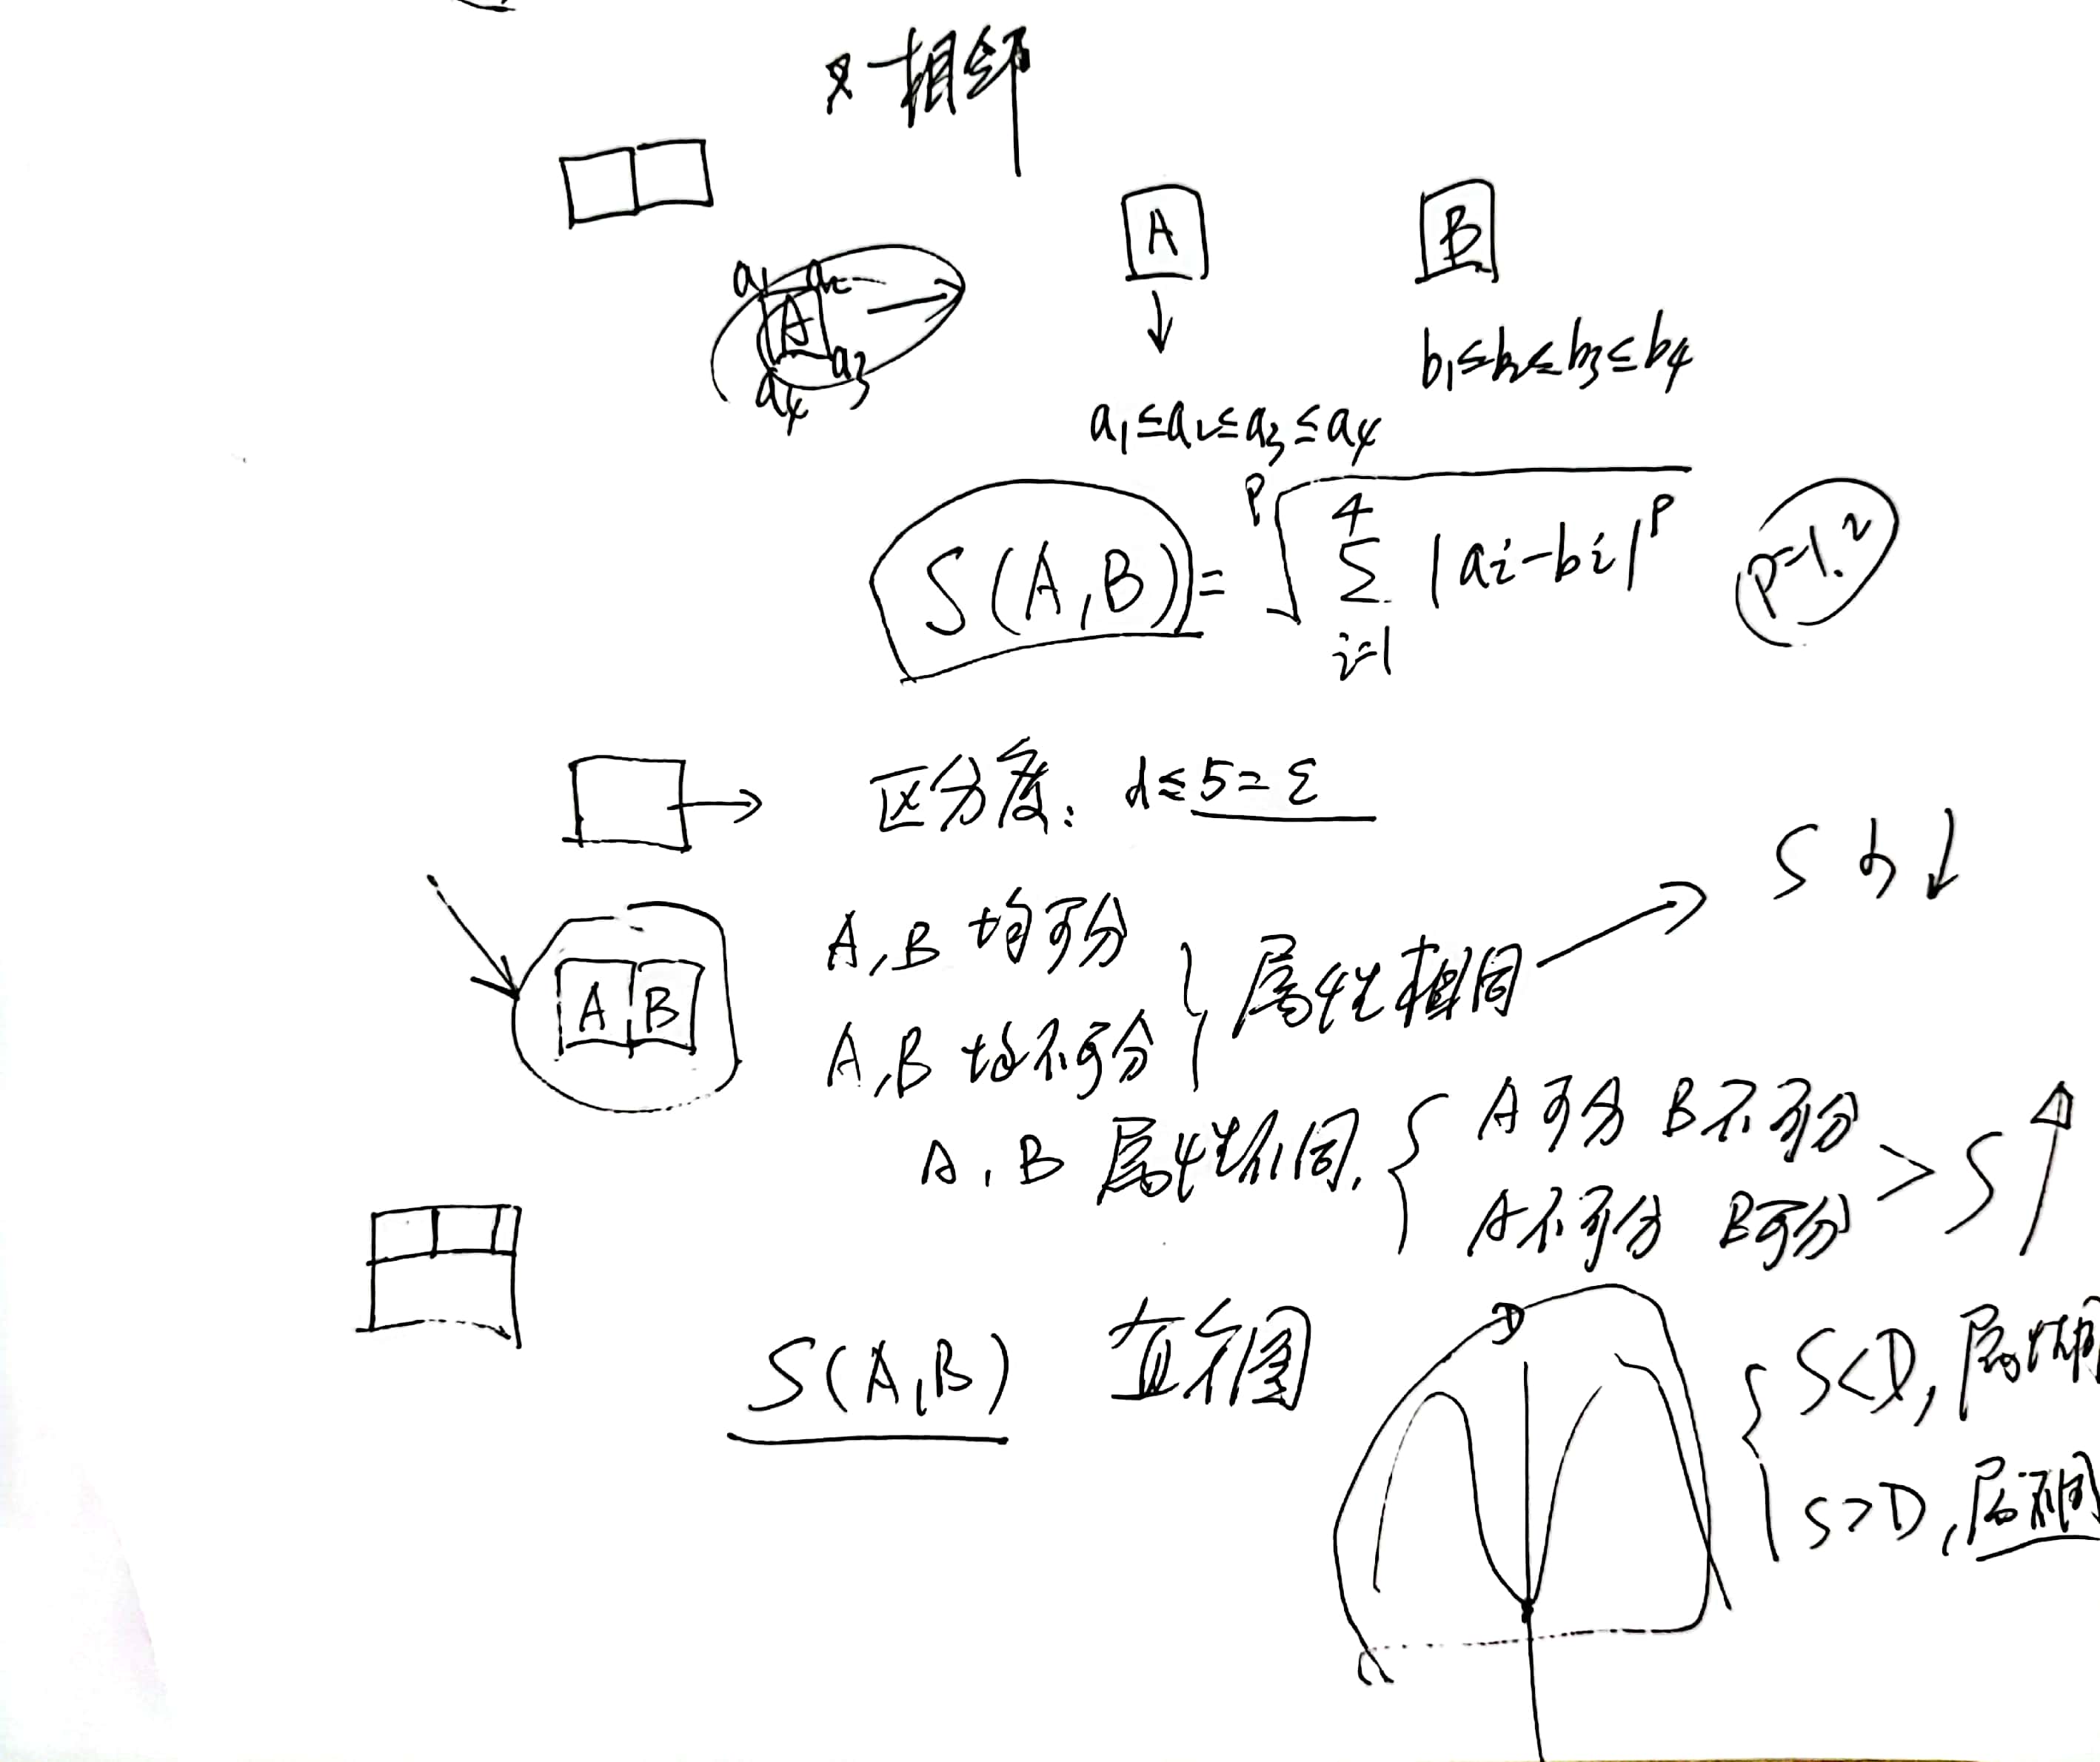 相邻
A
B
a1 a2
A
a4 a3
b1≤b2≤b3≤b4
a1≤a2≤a3≤a4
S(A,B) = ᵖ√ 4 Σ i=1 |ai-bi|ᵖ
P=1.2
区分度: d≤5=ε
S 小↓
A,B 均可分
A B
A,B 均不可分 } 属性相同 →
A,B 属性不同, { A可分 B不可分
A不可分 B可分 > S↑
S(A,B) 直方图
D
S<D,
S>D,